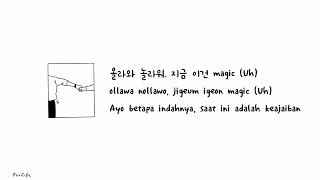 올라와 놀라워, 지금 이건 magic (Uh)
ollawa nollawo, jigeum igeon magic (Uh)
Ayo betapa indahnya, saat ini adalah keajaiban